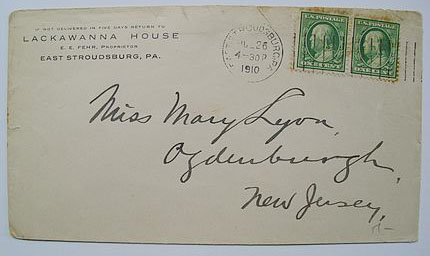 IF NOT DELIVERED IN FIVE DAYS RETURN TO
LACKAWANNA HOUSE
E. E. FEHR, PROPRIETOR
EAST STROUDSBURG, PA.
EAST STROUDSBURG, PA.
26
4-30P
1910
U.S. POSTAGE
ONE CENT
U.S. POSTAGE
ONE CENT
Miss Mary Lyon,
Ogdenburgh,
New Jersey,